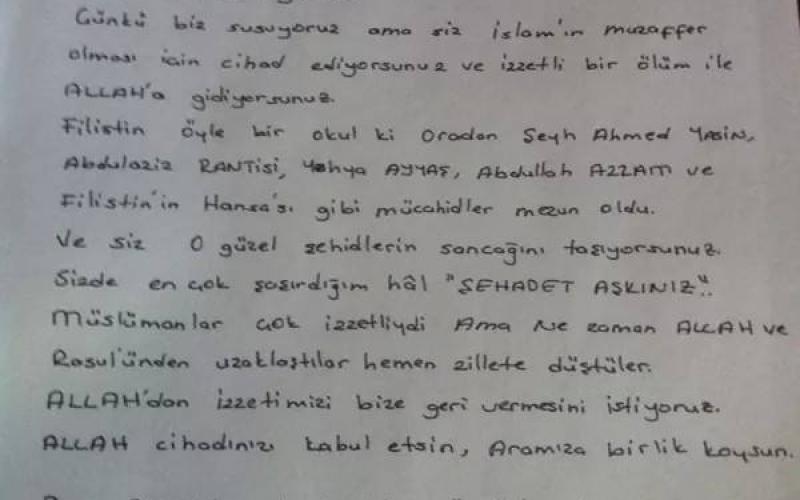 Günkü biz susuyoruz ama siz islam'ın muzaffer
olması için cihad ediyorsunuz ve izzetli bir ölüm ile
ALLAH'a gidiyorsunuz.
Filistin öyle bir okul ki Oradan Şeyh Ahmed YASiN,
Abdulaziz RANTiSi, Yahya AYYAŞ, Abdullah AZZAM ve
Filistin'in Hansa'sı gibi mücahidler mezun oldu.
Ve siz O güzel şehidlerin sancağını taşıyorsunuz.
Sizde en çok şaşırdığım hâl "ŞEHADET AŞKINIZ"..
Müslümanlar çok izzetliydi Ama Ne zaman ALLAH ve
Rasul'ünden uzaklaştılar hemen zillete düştüler.
ALLAH'dan izzetimizi bize geri vermesini istiyoruz.
ALLAH cihadınızı kabul etsin, Aramıza birlik koysun.